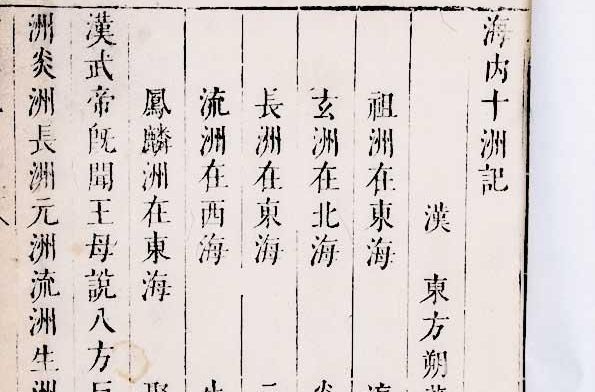 海内十洲記
漢 東方朔
祖洲在東海
玄洲在北海
長洲在東海
流洲在西海
鳳麟洲在東海
漢武帝旣聞王母說八方
洲炎洲長洲元洲流洲生洲